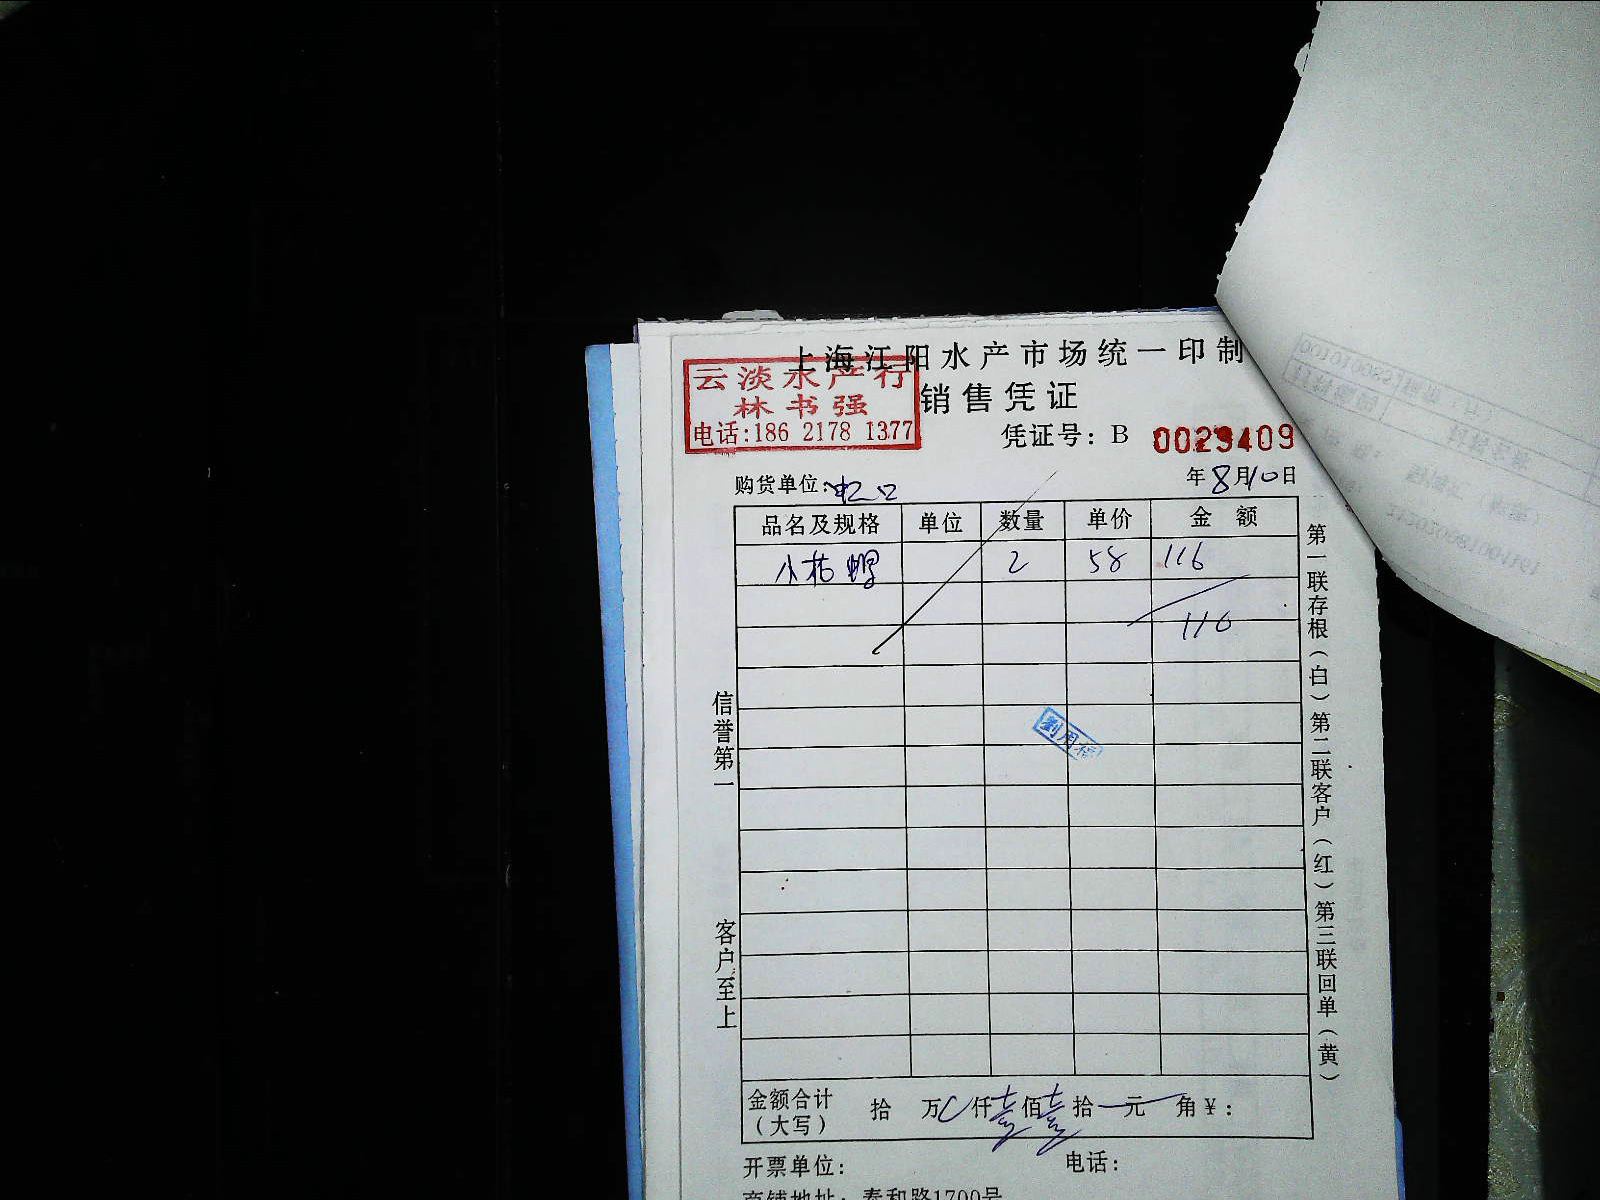 上海江阳水产市场统一印制
云淡水产行
林书强
电话:186 2178 1377
销售凭证
凭证号: B 0029409
购货单位:虹口
年8月10日
品名及规格 单位 数量 单价 金额
小枯 2 58 116
116
信誉第一
客户至上
劉用信
第一联存根(白)第二联客户(红)第三联回单(黄)
金额合计(大写) 拾 万 仟壹佰壹拾 元 角¥:
开票单位: 电话:
商铺地址: 泰和路1700号